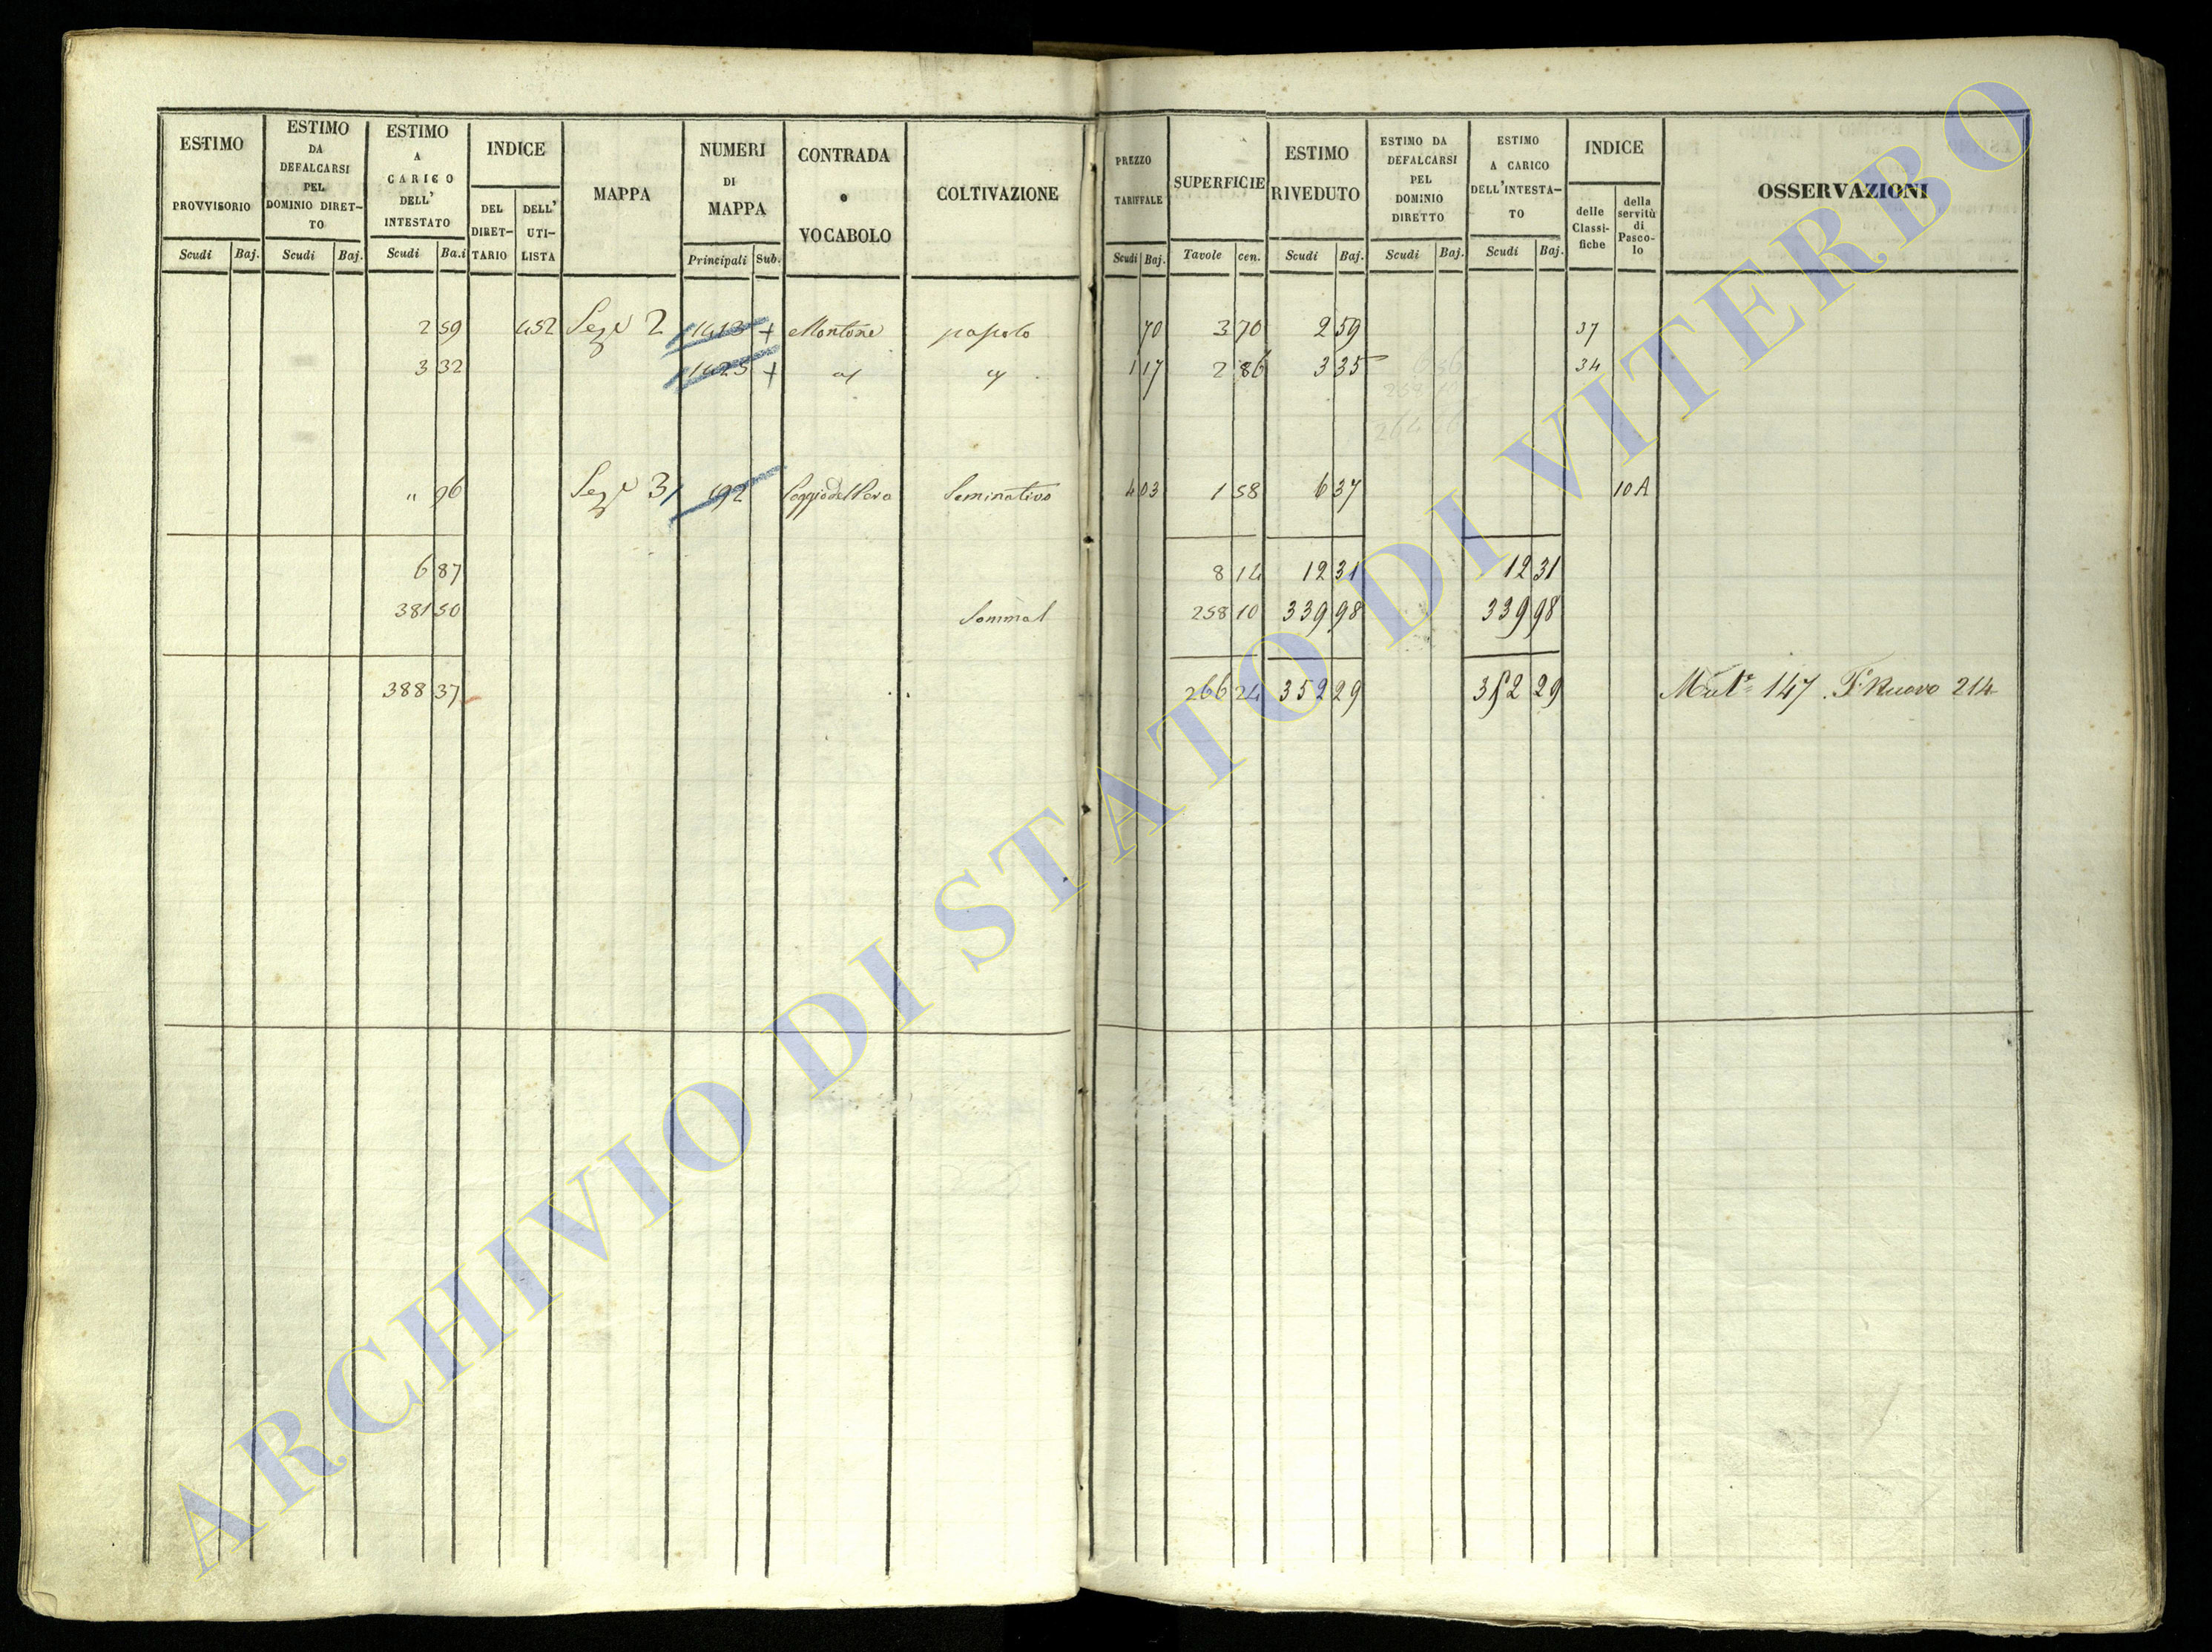 ESTIMO PROVVISORIO Scudi Baj.
ESTIMO DA DEFALCARSI PEL DOMINIO DIRET-TO Scudi Baj.
ESTIMO A CARICO DELL' INTESTATO Scudi Ba.i
INDICE DEL DIRET-TARIO DELL' UTI-LISTA
MAPPA
NUMERI DI MAPPA Principali Sub.
CONTRADA o VOCABOLO
COLTIVAZIONE
PREZZO TARIFFALE Scudi Baj.
SUPERFICIE Tavole cen.
ESTIMO RIVEDUTO Scudi Baj.
ESTIMO DA DEFALCARSI PEL DOMINIO DIRETTO Scudi Baj.
ESTIMO A CARICO DELL'INTESTA-TO Scudi Baj.
INDICE delle Classi-fiche della servitù di Pasco-lo
OSSERVAZIONI
2 59 452 Sez.e 2 1413 + Montone pascolo 70 3 70 2 59 37
3 32 1425 + 1 17 2 86 3 35 34
" 96 Sez.e 3 192 Seminativo 4 03 1 58 6 37 10A
6 87 8 14 12 31 12 31
381 50 258 10 339 98 339 98
388 37 266 24 352 29 352 29 147 Nuovo 214
ARCHIVIO DI STATO DI VITERBO